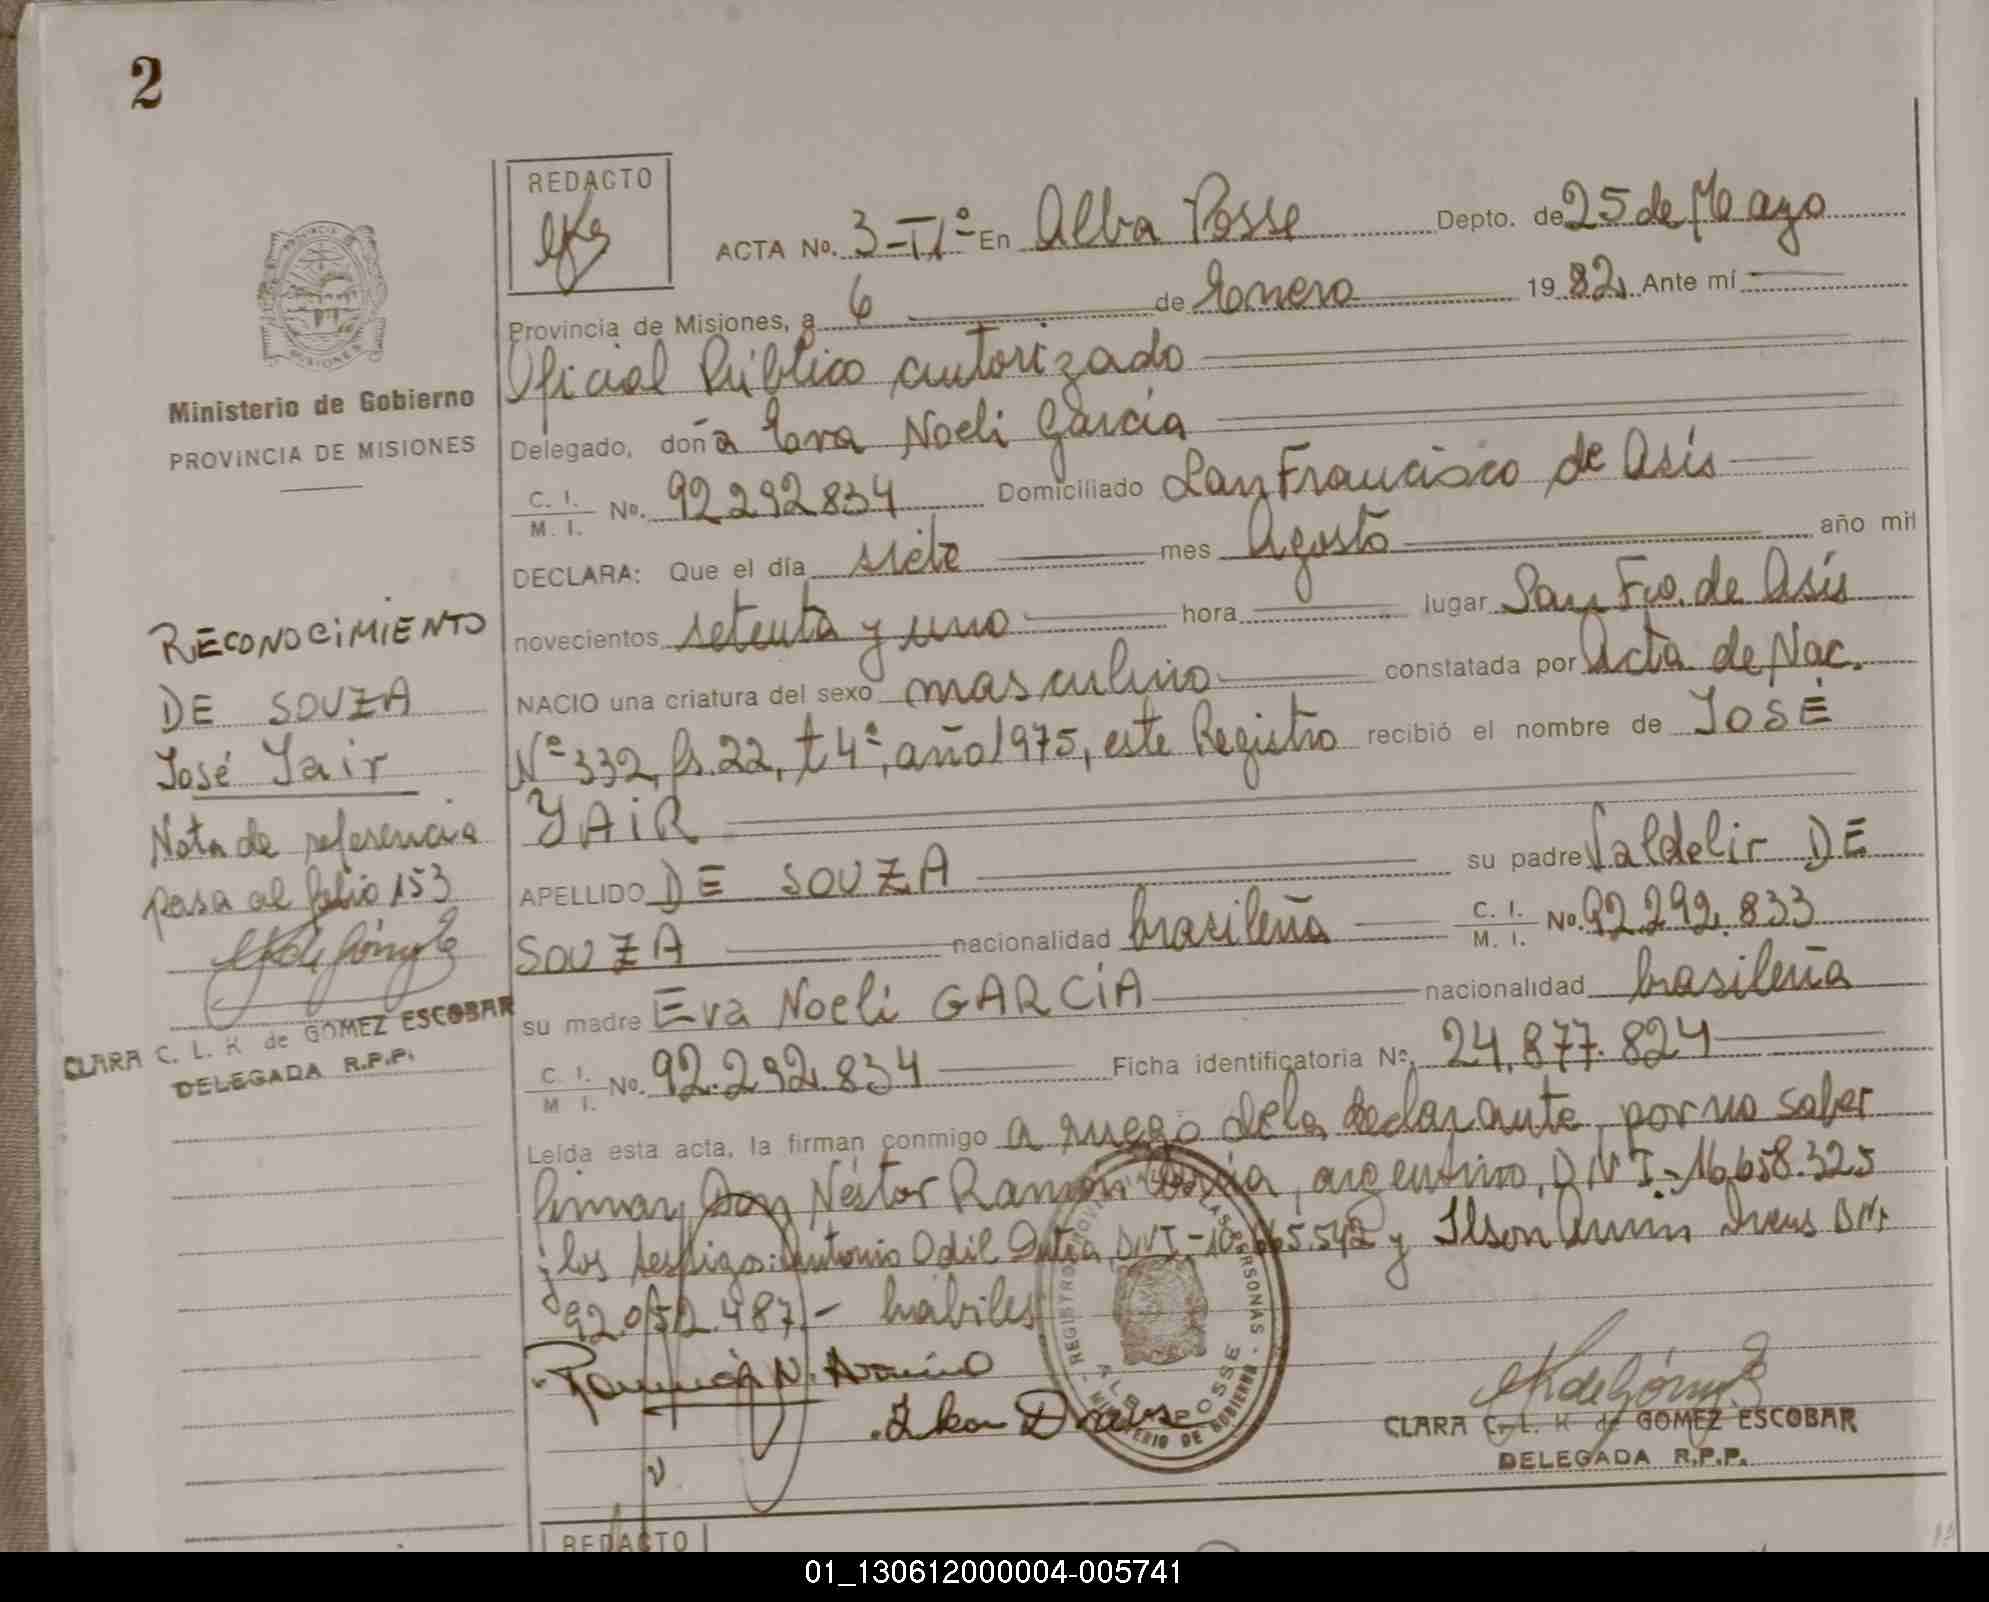 2
REDACTO
ACTA No. 3-II° En Alba Posse Depto. de 25 de Mayo
Provincia de Misiones, a 6 de Enero 19 82. Ante mí
Oficial Público autorizado
Delegado, doña Eva Noeli García
C. I. / M. I. No. 92292834 Domiciliado San Francisco de Asís
DECLARA: Que el día siete mes Agosto año mil
novecientos setenta y uno hora lugar San Fco. de Asís
NACIO una criatura del sexo masculino constatada por Acta de Nac.
Nº 332, fs. 22, t 4º, año 1975, este Registro recibió el nombre de JOSÉ
YAIR
APELLIDO DE SOUZA su padre Valdelir DE
SOUZA nacionalidad brasileña C. I. / M. I. No. 92.292.833
su madre Eva Noeli GARCÍA nacionalidad brasileña
C. I. / M. I. No. 92.292.834 Ficha identificatoria No. 24.877.824
Leída esta acta, la firman conmigo a ruego de la declarante, por no saber
firmar, Don Néstor Ramón, argentino, D N I.- 16.658.325
y los testigos: Antonio Odil D N I.- 542 y Ilson D N I
92.052.487.- hábiles
CLARA C. L. K de GOMEZ ESCOBAR
DELEGADA R.P.P.
REGISTRO PROVINCIAL DE LAS PERSONAS
ALBA POSSE
MINISTERIO DE GOBIERNO
PROVINCIA DE MISIONES
Ministerio de Gobierno
PROVINCIA DE MISIONES
RECONOCIMIENTO
DE SOUZA
José Yair
Nota de referencia
pasa al folio 153
CLARA C. L. K de GOMEZ ESCOBAR
DELEGADA R.P.P.
REDACTO
01_130612000004-005741